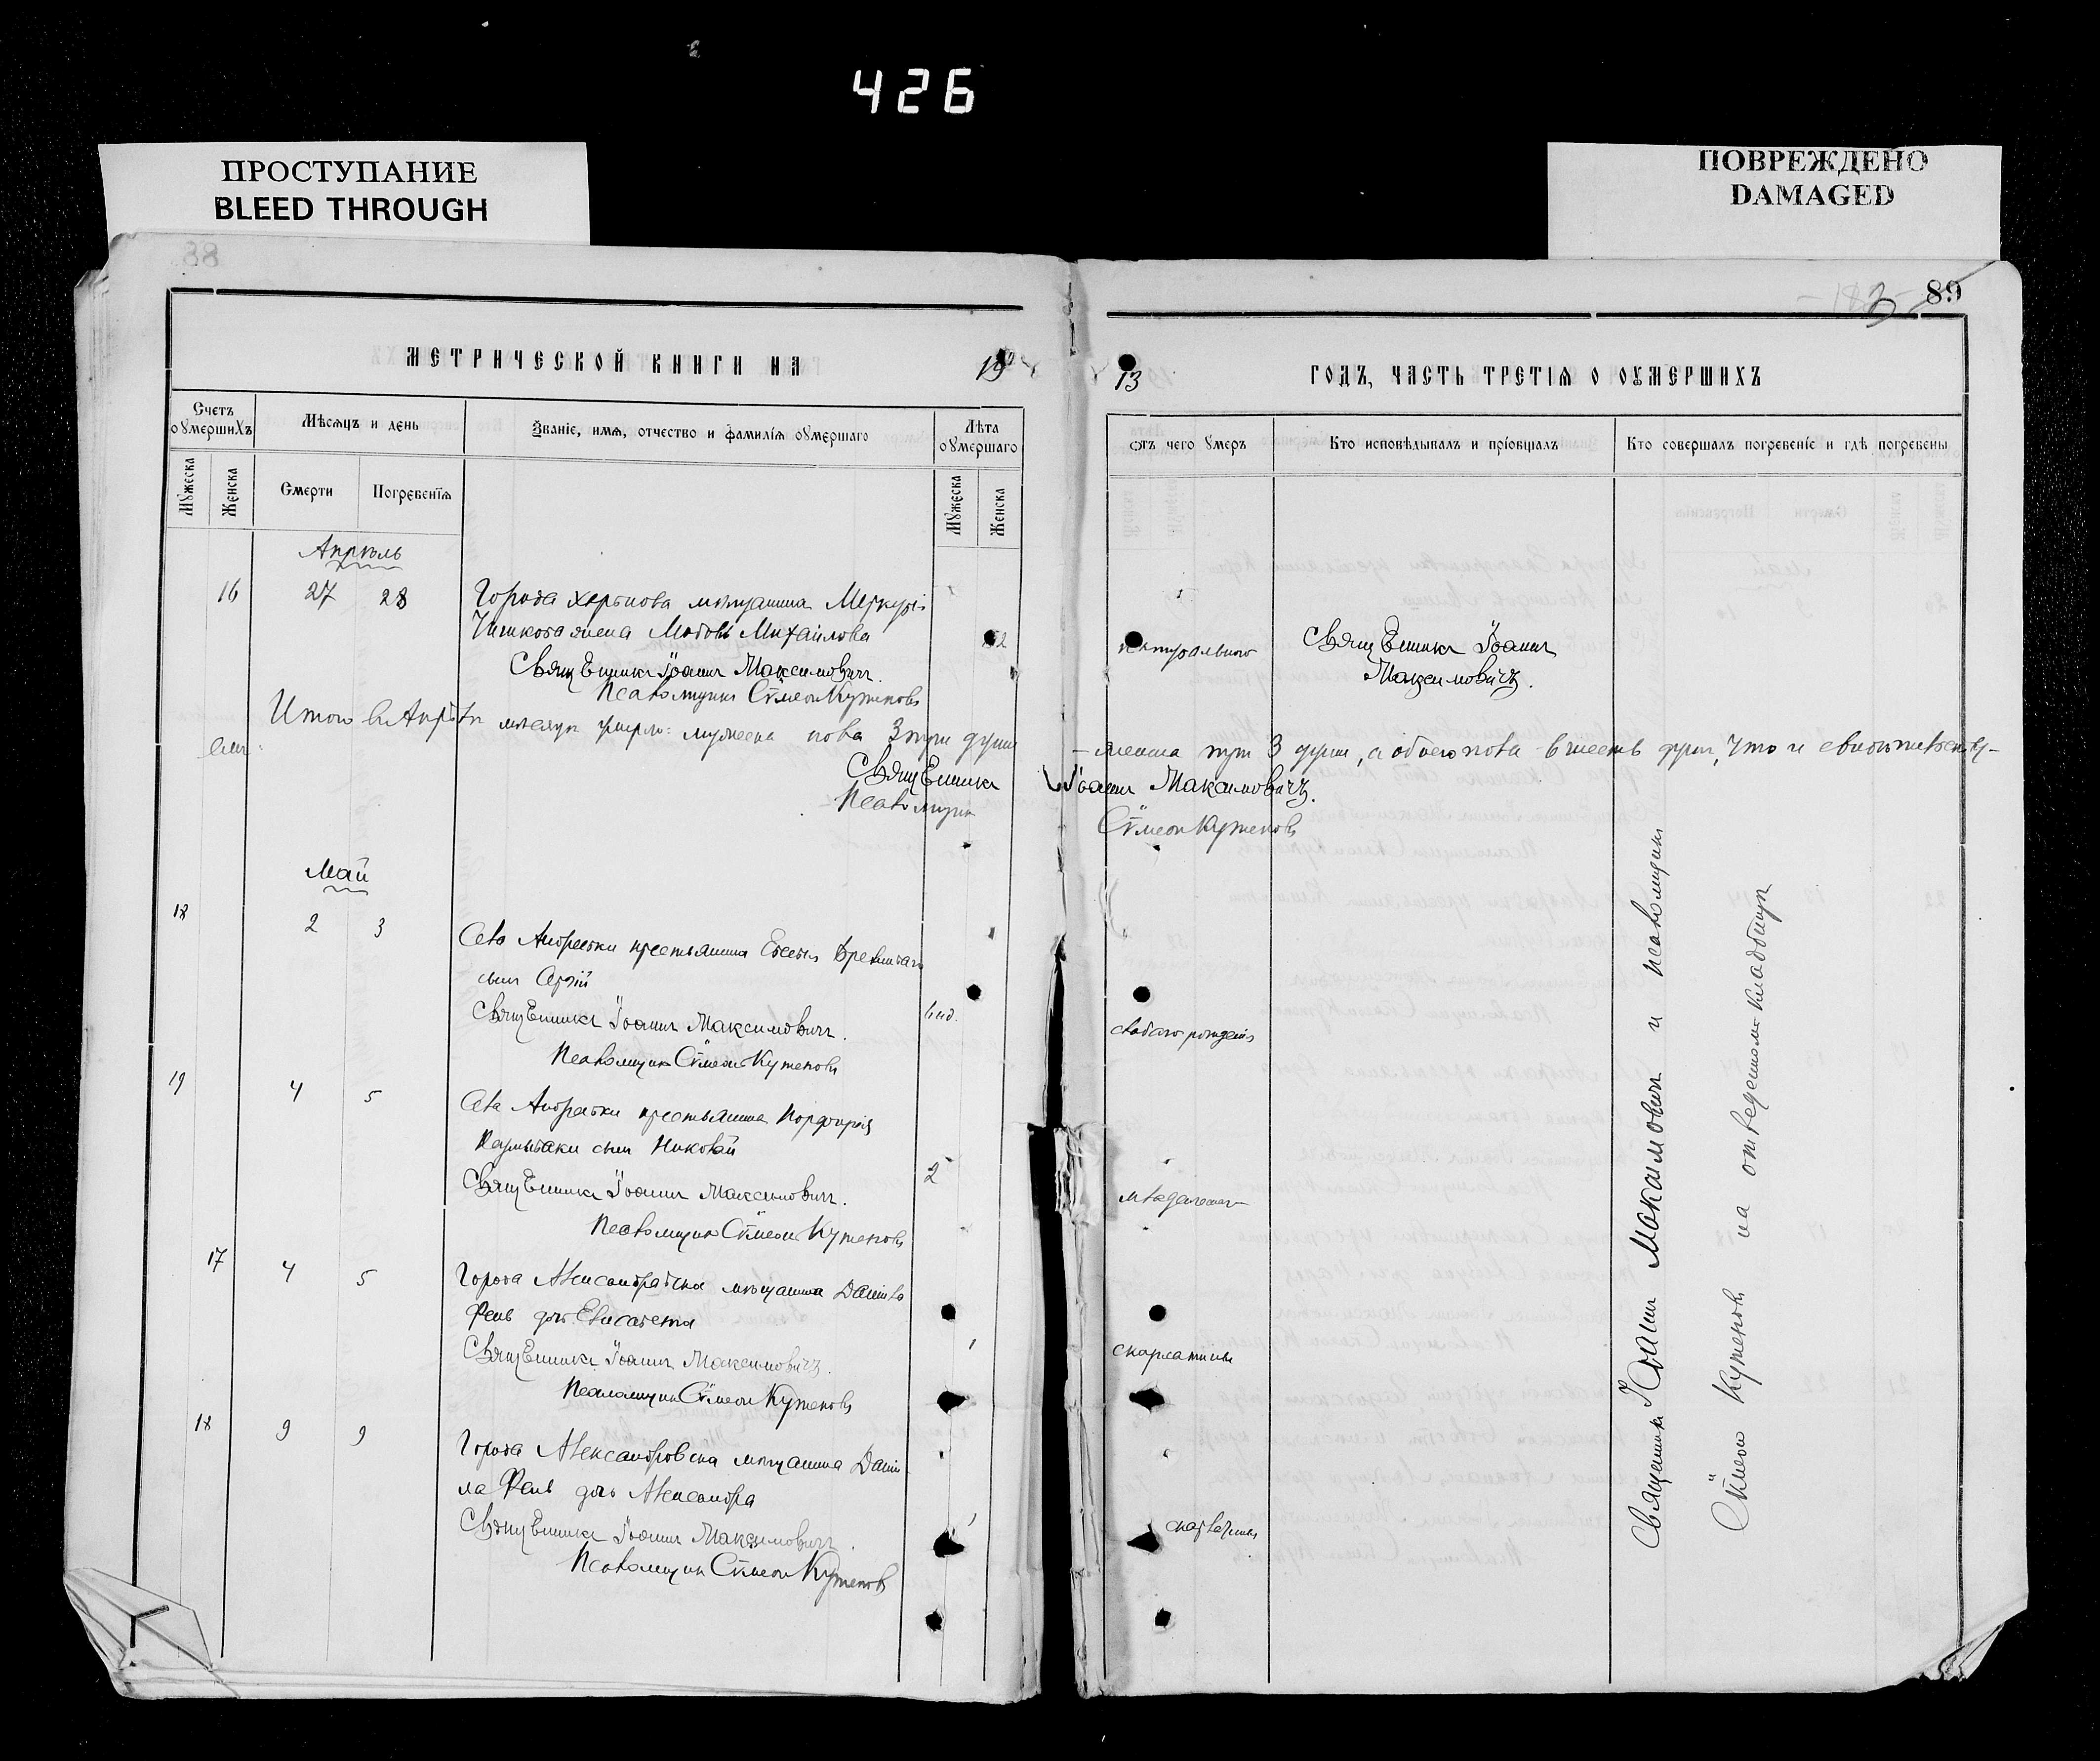 426
ПРОСТУПАНИЕ
BLEED THROUGH
ПОВРЕЖДЕНО
DAMAGED
88
89
МЕТРИЧЕСКОЙ КНИГИ НА 19
13 ГОДЪ, ЧАСТЬ ТРЕТІЯ О ОУМЕРШИХЪ
Счетъ оумершихъ
Мѣсяцъ и день
Званіе, имя, отчество и фамилія оумершаго
Лѣта оумершаго
отъ чего умеръ
Кто исповѣдывалъ и пріобщалъ
Кто совершалъ погребеніе и гдѣ погребены
Мужеска
Женска
Смерти
Погребенія
Мужеска
Женска
Апрѣль
16 27 28 Города Харькова мѣщанина Меркурія
жена Любовь Михайлова
Священникъ Іоаннъ Максимовичъ.
Священникъ Іоаннъ
Максимовичъ.
Псаломщикъ Сѵмеонъ Кутеповъ
Итого въ Апрѣлѣ мѣсяцѣ умерло: мужеска пола 3 три души
женска три 3 души, а обоего пола шесть душ, что и свидѣтельству-
емъ:
Священникъ Іоаннъ Максимовичъ.
Псаломщикъ Сѵмеонъ Кутеповъ
Май
18 2 3 Села Андреевки крестьянина
сынъ Сергій
Священникъ Іоаннъ Максимовичъ.
6 нед.
слабаго рожденія
Псаломщикъ Сѵмеонъ Кутеповъ
19 4 5 Села Андреевки крестьянина Порфирія
сынъ Николай
Священникъ Іоаннъ Максимовичъ.
2
младенческой
Псаломщикъ Сѵмеонъ Кутеповъ
17 4 5 Города Александровска мѣщанина Даніила
дочь Елисавета
Священникъ Іоаннъ Максимовичъ.
1
скарлатины
Псаломщикъ Сѵмеонъ Кутеповъ
18 9 9 Города Александровска мѣщанина Дании-
ла дочь Александра
Священникъ Іоаннъ Максимовичъ.
1
скарлатины
Псаломщикъ Сѵмеонъ Кутеповъ
Священникъ Іоаннъ Максимовичъ и псаломщикъ
Сѵмеонъ Кутеповъ на отведенномъ кладбищѣ